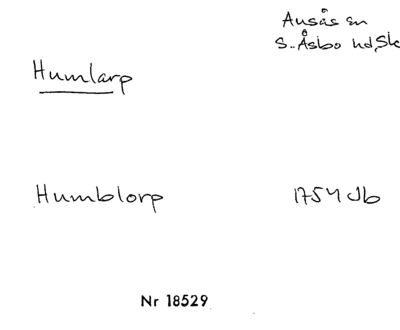 Ausås sn
S. Åsbo hd, Sk
Humlarp
Humblorp 1754 Jb
Nr 18529